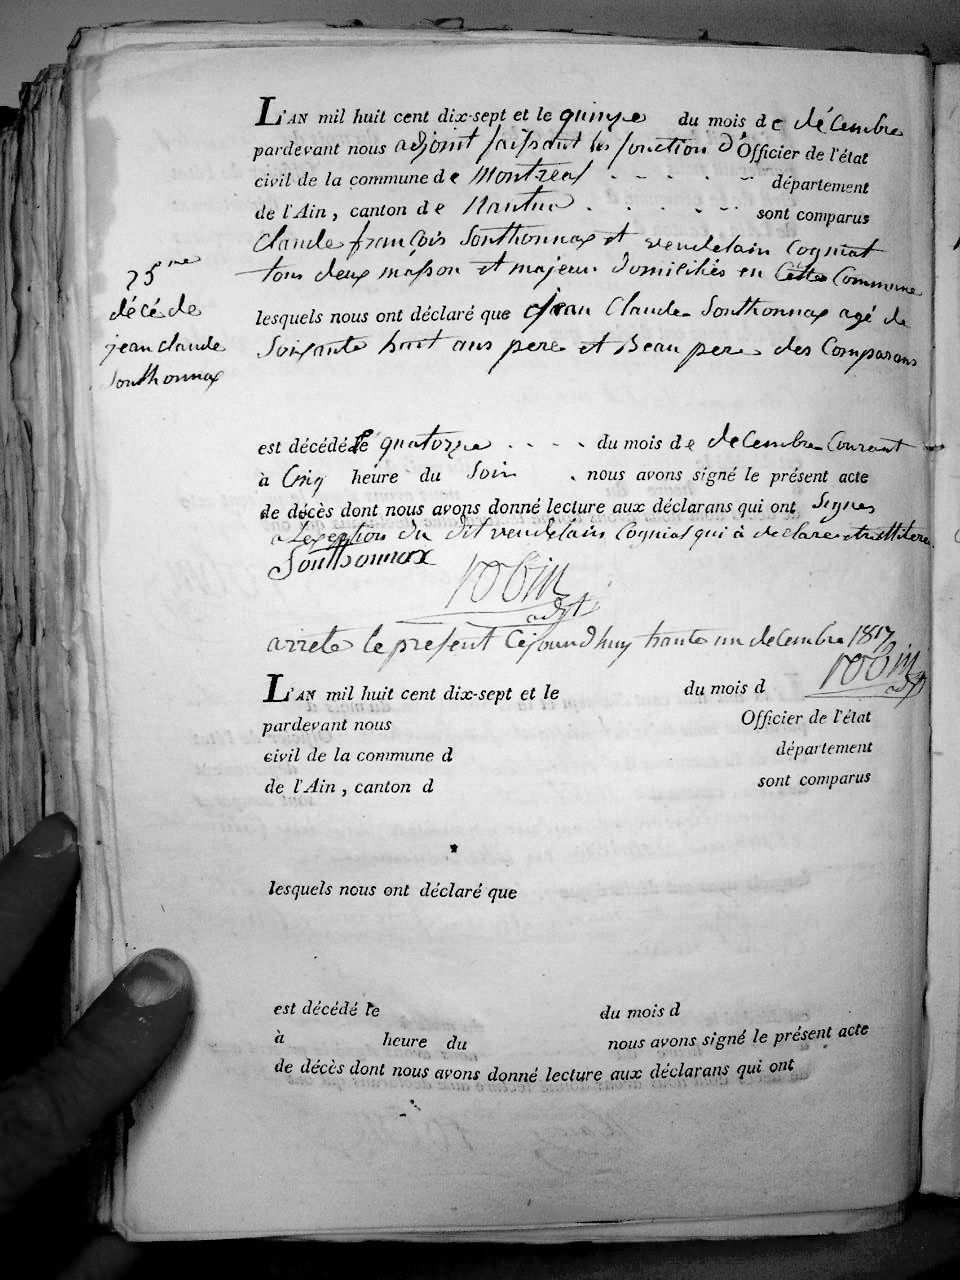 L'AN mil huit cent dix-sept et le quinze du mois de décembre
pardevant nous adjoint faissant les fonction d'Officier de l'état
civil de la commune de Montreal département
de l'Ain, canton de Nantua sont comparus
Claude françois Sonthonnax et vendelain Cogniat
tous deux masson et majeur domiciliés en Cette Commune
25me
décé de
jean claude
Sonthonnax
lesquels nous ont déclaré que Jean Claude Sonthonnax agé de
Soixante huit ans pere et Beau pere des Comparans
est décédé le quatorze du mois de decembre Courant
à Cinq heure du Soir nous avons signé le présent acte
de décès dont nous avons donné lecture aux déclarans qui ont Signes
a L'exeption du dit vendelain Cogniat qui à declare
Sonthonnax
robin
adjt
arrete le present Cejourd'huy trante un decembre 1817
robin
adjt
L'AN mil huit cent dix-sept et le du mois d
pardevant nous Officier de l'état
civil de la commune d département
de l'Ain, canton d sont comparus
lesquels nous ont déclaré que
est décédé le du mois d
à heure du nous avons signé le présent acte
de décès dont nous avons donné lecture aux déclarans qui ont